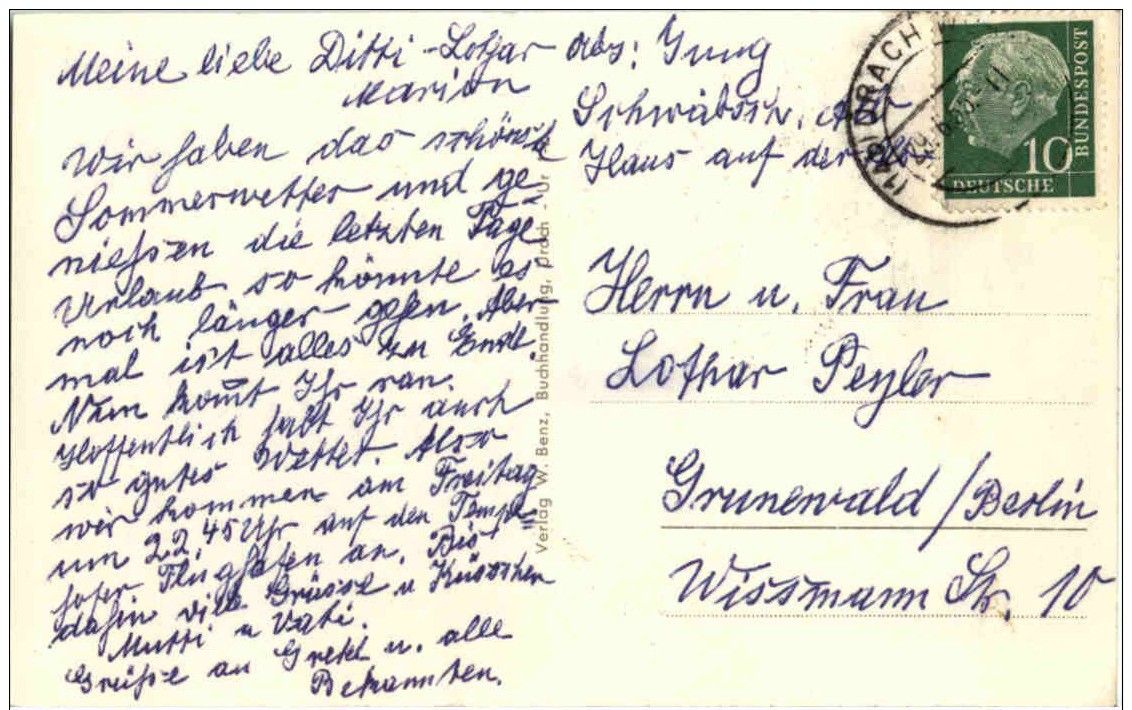 Meine liebe Ditti - Lothar
Marion
Wir haben das schönste
Sommerwetter und ge=
nießen die letzten Tage
Urlaub so könnte es
noch länger gehen. Aber
mal ist alles zu Ende.
Nun kommt Ihr ran.
Hoffentlich habt Ihr auch
so gutes Wetter. Also
wir kommen am Freitag
um 22,45 Uhr auf den Tempel=
hofer Flughafen an. Bis
dahin viele Grüsse u Küsschen
Mutti u Vati.
Grüße an Gretel u. alle
Bekannten.
Abs: Jung
Schwabsch,
Haus auf der
Verlag W. Benz, Buchhandlung,
BUNDESPOST
10
DEUTSCHE
Herrn u. Frau
Lothar Peyler
Grunewald / Berlin
Wissmann Str. 10